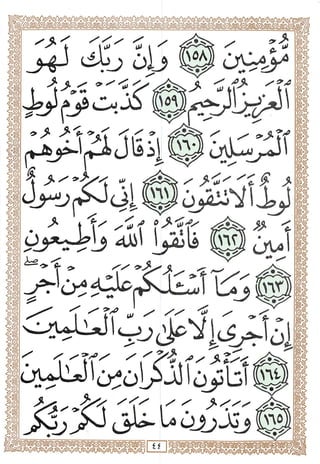 مُّؤْمِنِينَ ١٥٨ وَإِنَّ رَبَّكَ لَهُوَ
الْعَزِيزُ الرَّحِيمُ ١٥٩ كَذَّبَتْ قَوْمُ لُوطٍ
الْمُرْسَلِينَ ١٦٠ إِذْ قَالَ لَهُمْ أَخُوهُمْ
لُوطٌ أَلَا تَتَّقُونَ ١٦١ إِنِّي لَكُمْ رَسُولٌ
أَمِينٌ ١٦٢ فَاتَّقُوا اللَّهَ وَأَطِيعُونِ
١٦٣ وَمَآ أَسْـَٔلُكُمْ عَلَيْهِ مِنْ أَجْرٍ ۖ
إِنْ أَجْرِىَ إِلَّا عَلَىٰ رَبِّ الْعَٰلَمِينَ
١٦٤ أَتَأْتُونَ الذُّكْرَانَ مِنَ الْعَٰلَمِينَ
١٦٥ وَتَذَرُونَ مَا خَلَقَ لَكُمْ رَبُّكُم
٤٤